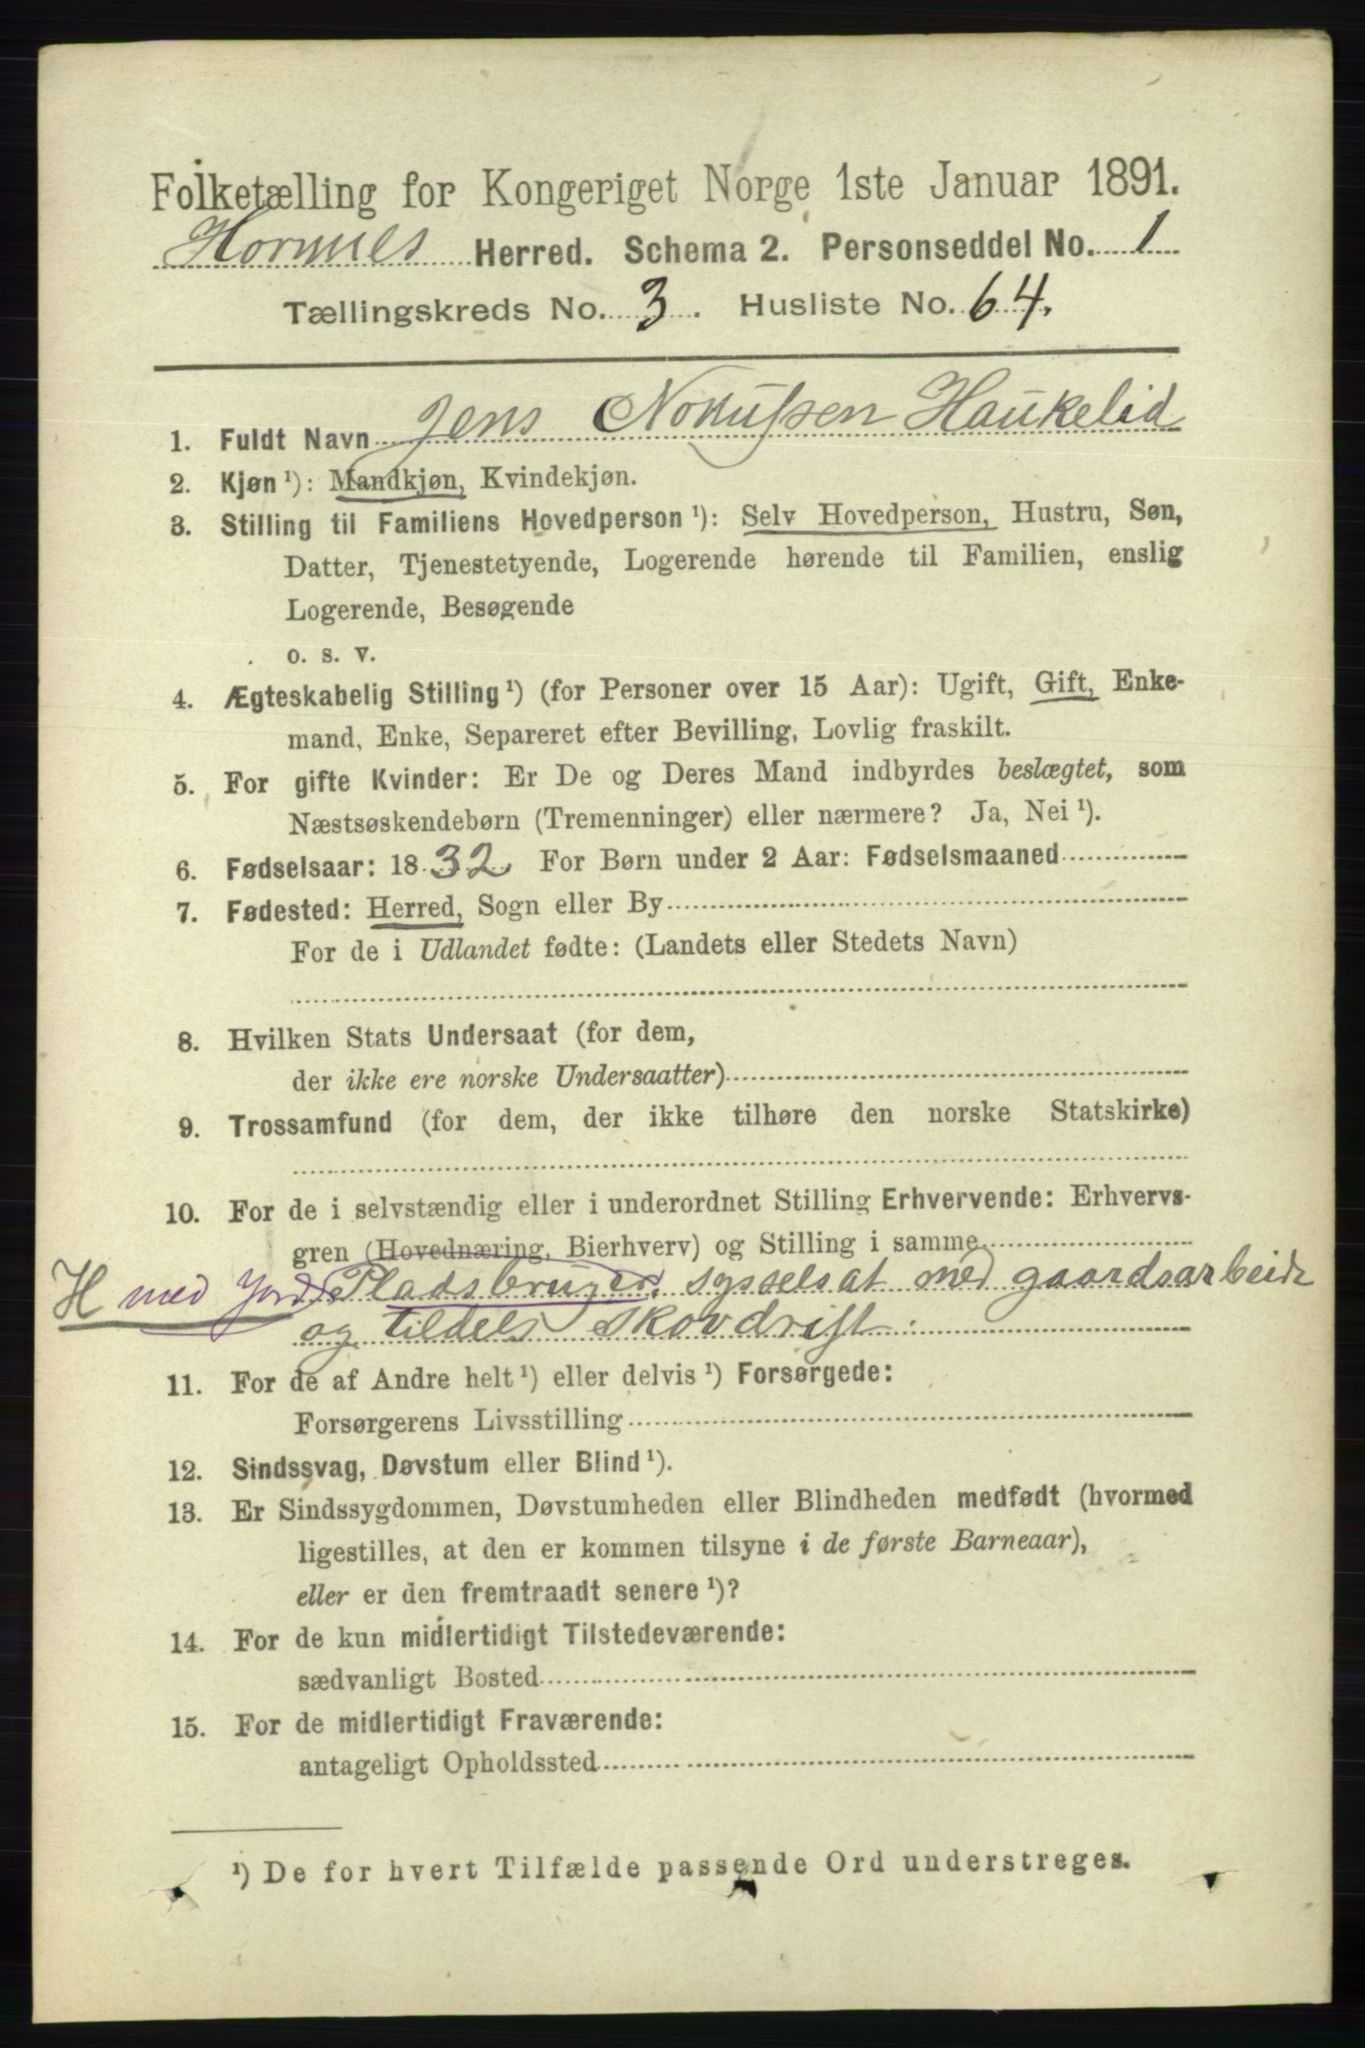 Folketælling for Kongeriget Norge 1ste Januar 1891.
Hornnes Herred. Schema 2. Personseddel No. 1
Tællingskreds No. 3. Husliste No. 64.
1. Fuldt Navn Jens Haukelid
2. Kjøn ¹): Mandkjøn, Kvindekjøn.
3. Stilling til Familiens Hovedperson ¹): Selv Hovedperson, Hustru, Søn,
Datter, Tjenestetyende, Logerende hørende til Familien, enslig
Logerende, Besøgende
o. s. v.
4. Ægteskabelig Stilling ¹) (for Personer over 15 Aar): Ugift, Gift, Enke-
mand, Enke, Separeret efter Bevilling, Lovlig fraskilt.
5. For gifte Kvinder: Er De og Deres Mand indbyrdes beslægtet, som
Næstsøskendebørn (Tremenninger) eller nærmere? Ja, Nei ¹).
6. Fødselsaar: 1832 For Børn under 2 Aar: Fødselsmaaned
7. Fødested: Herred, Sogn eller By
For de i Udlandet fødte: (Landets eller Stedets Navn)
8. Hvilken Stats Undersaat (for dem,
der ikke ere norske Undersaatter)
9. Trossamfund (for dem, der ikke tilhøre den norske Statskirke)
10. For de i selvstændig eller i underordnet Stilling Erhvervende: Erhvervs-
gren (Hovednæring, Bierhverv) og Stilling i samme
H med Jord Pladsbruger, sysselsat med gaardsarbeide
og tildels skovdrift.
11. For de af Andre helt ¹) eller delvis ¹) Forsørgede:
Forsørgerens Livsstilling
12. Sindssvag, Døvstum eller Blind ¹).
13. Er Sindssygdommen, Døvstumheden eller Blindheden medfødt (hvormed
ligestilles, at den er kommen tilsyne i de første Barneaar),
eller er den fremtraadt senere ¹)?
14. For de kun midlertidigt Tilstedeværende:
sædvanligt Bosted
15. For de midlertidigt Fraværende:
antageligt Opholdssted
¹) De for hvert Tilfælde passende Ord understreges.